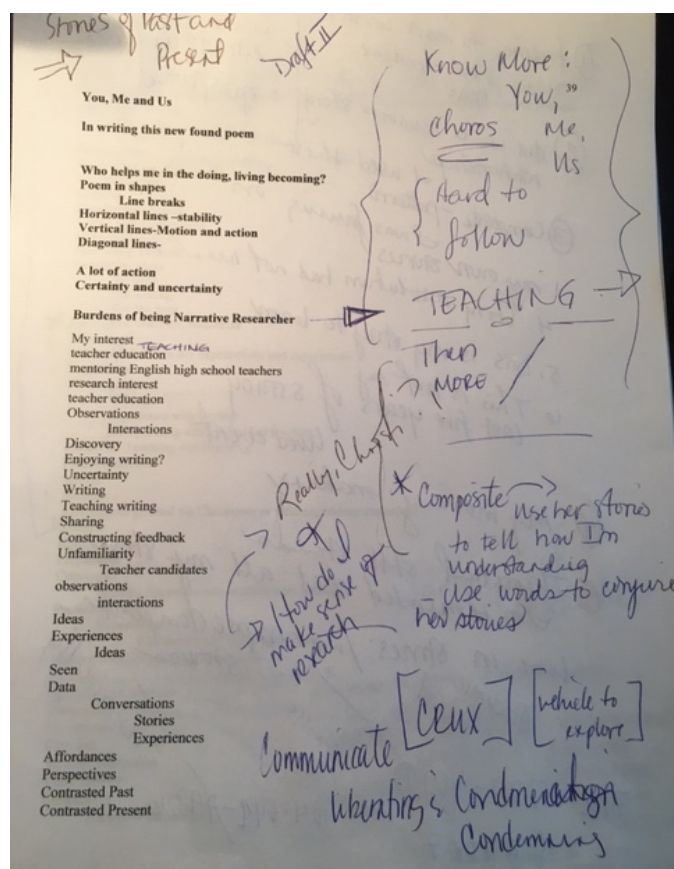 Stories of Past and
Present
Draft II
You, Me and Us
In writing this new found poem
Who helps me in the doing, living becoming?
Poem in shapes
Line breaks
Horizontal lines –stability
Vertical lines-Motion and action
Diagonal lines-
A lot of action
Certainty and uncertainty
Burdens of being Narrative Researcher
My interest TEACHING
teacher education
mentoring English high school teachers
research interest
teacher education
Observations
Interactions
Discovery
Enjoying writing?
Uncertainty
Writing
Teaching writing
Sharing
Constructing feedback
Unfamiliarity
Teacher candidates
observations
interactions
Ideas
Experiences
Ideas
Seen
Data
Conversations
Stories
Experiences
Affordances
Perspectives
Contrasted Past
Contrasted Present
Know More:
You, 39
Choros Me,
Us
Hard to
follow
TEACHING
Then
MORE
Really,
How do I
make sense of
research
* Composite use her stories
to tell how I'm
understanding
– use words to conjure
her stories
[CRUX] [vehicle to
explore]
Communicate
Condemning